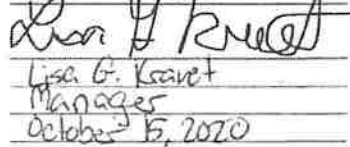 Lisa G Kravet
Lisa G. Kravet
Manager
October 15, 2020